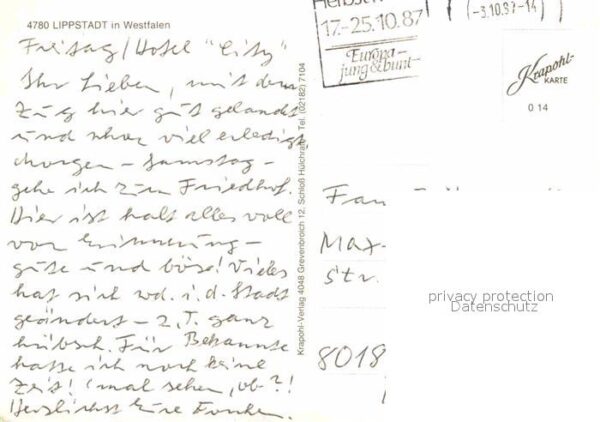 4780 LIPPSTADT in Westfalen
Freitag / Hotel "City"
Ihr Lieben, mit dem
Zug hier gut gelandet
und schon viel erledigt
morgen – Samstag –
gehe ich zum Friedhof.
Hier ist halt alles voll
von Erinnerung –
gute und böse! Vieles
hat sich wd. i. d. Stadt
geändert – z. T. ganz
hübsch. Für Bekannte
hatte ich noch keine
Zeit! (mal sehen, ob?!
Herzlichst Eure
Krapohl-Verlag 4048 Grevenbroich 12, Schloß Hülchrath, Tel. (02182) 7104
17.-25.10.87
Europa-
jung & bunt
-3.10.87-14
Krapohl-
KARTE
0 14
Fam.
Max-
str.
8018
privacy protection
Datenschutz